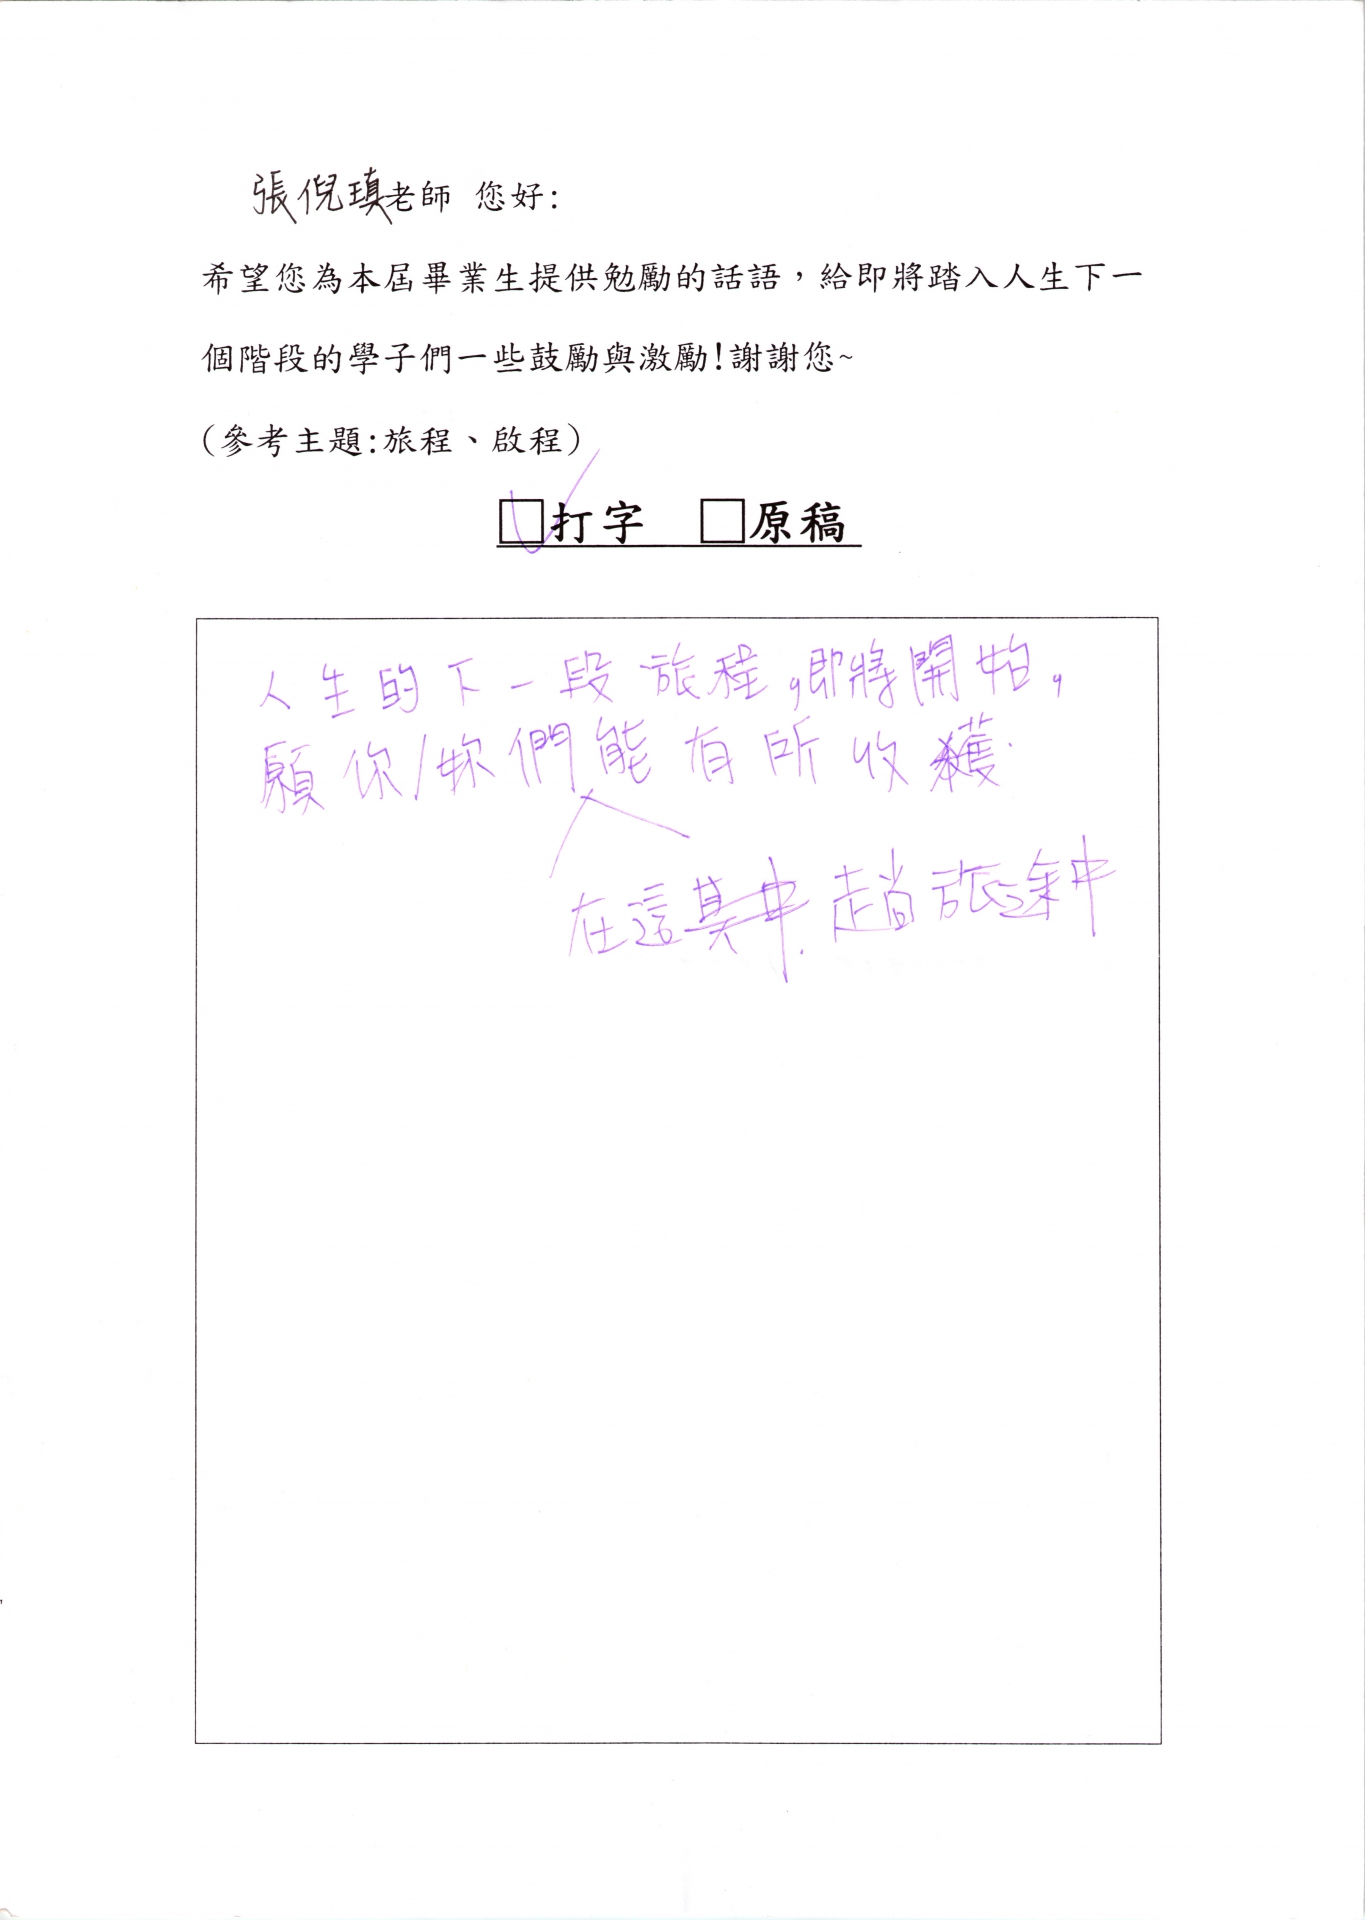 張倪瑱老師 您好:
希望您為本屆畢業生提供勉勵的話語，給即將踏入人生下一
個階段的學子們一些鼓勵與激勵!謝謝您~
(參考主題:旅程、啟程)
□打字 □原稿
人生的下一段旅程,即將開始,
願你/妳們能有所收獲.
在這其中.趟旅途中